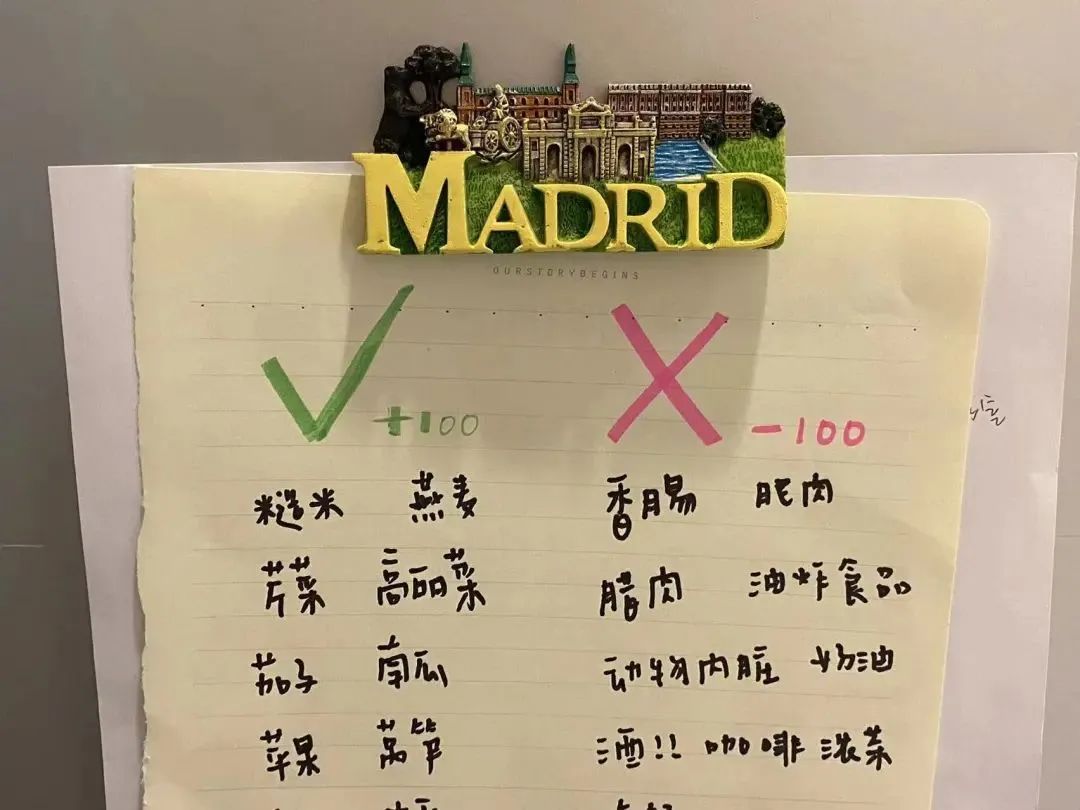 MADRID
OURSTORYBEGINS
+100 -100
糙米 燕麦 香肠 肥肉
芹菜 高丽菜 腊肉 油炸食品
茄子 南瓜 动物内脏 奶油
苹果 莴笋 酒!! 咖啡 浓茶